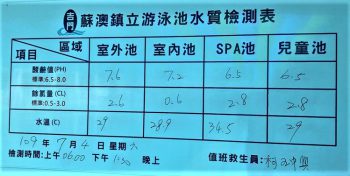 蘇澳鎮立游泳池水質檢測表
區域 項目 室外池 室內池 SPA池 兒童池
酸鹼值(PH) 標準:6.5-8.0 7.6 7.2 6.5 6.5
餘氯量(CL) 標準:0.5-3.0 2.6 0.6 2.8 2.8
水溫(C) 29 28.9 34.5 29
109年7月4日星期六
檢測時間:上午06:00 下午1:30 晚上 值班救生員:柯